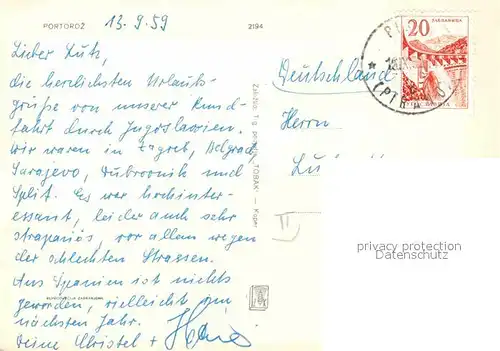 PORTOROŽ
13.9.59
2194
Lieber Lutz,
die herzlichsten Urlaubs-
grüße von unserer Rund-
fahrt durch Jugoslawien.
Wir waren in Zagreb, Belgrad,
Sarajevo, Dubrovnik und
Split. Es war hochinter-
essant, leider auch sehr
strapaziös, vor allem wegen
der schlechten Strassen.
Aus Spanien ist nichts
geworden, vielleicht im
nächsten Jahr.
Deine Christel +
"TOBAK" - Koper
20
Deutschland
Herrn
II
privacy protection
Datenschutz